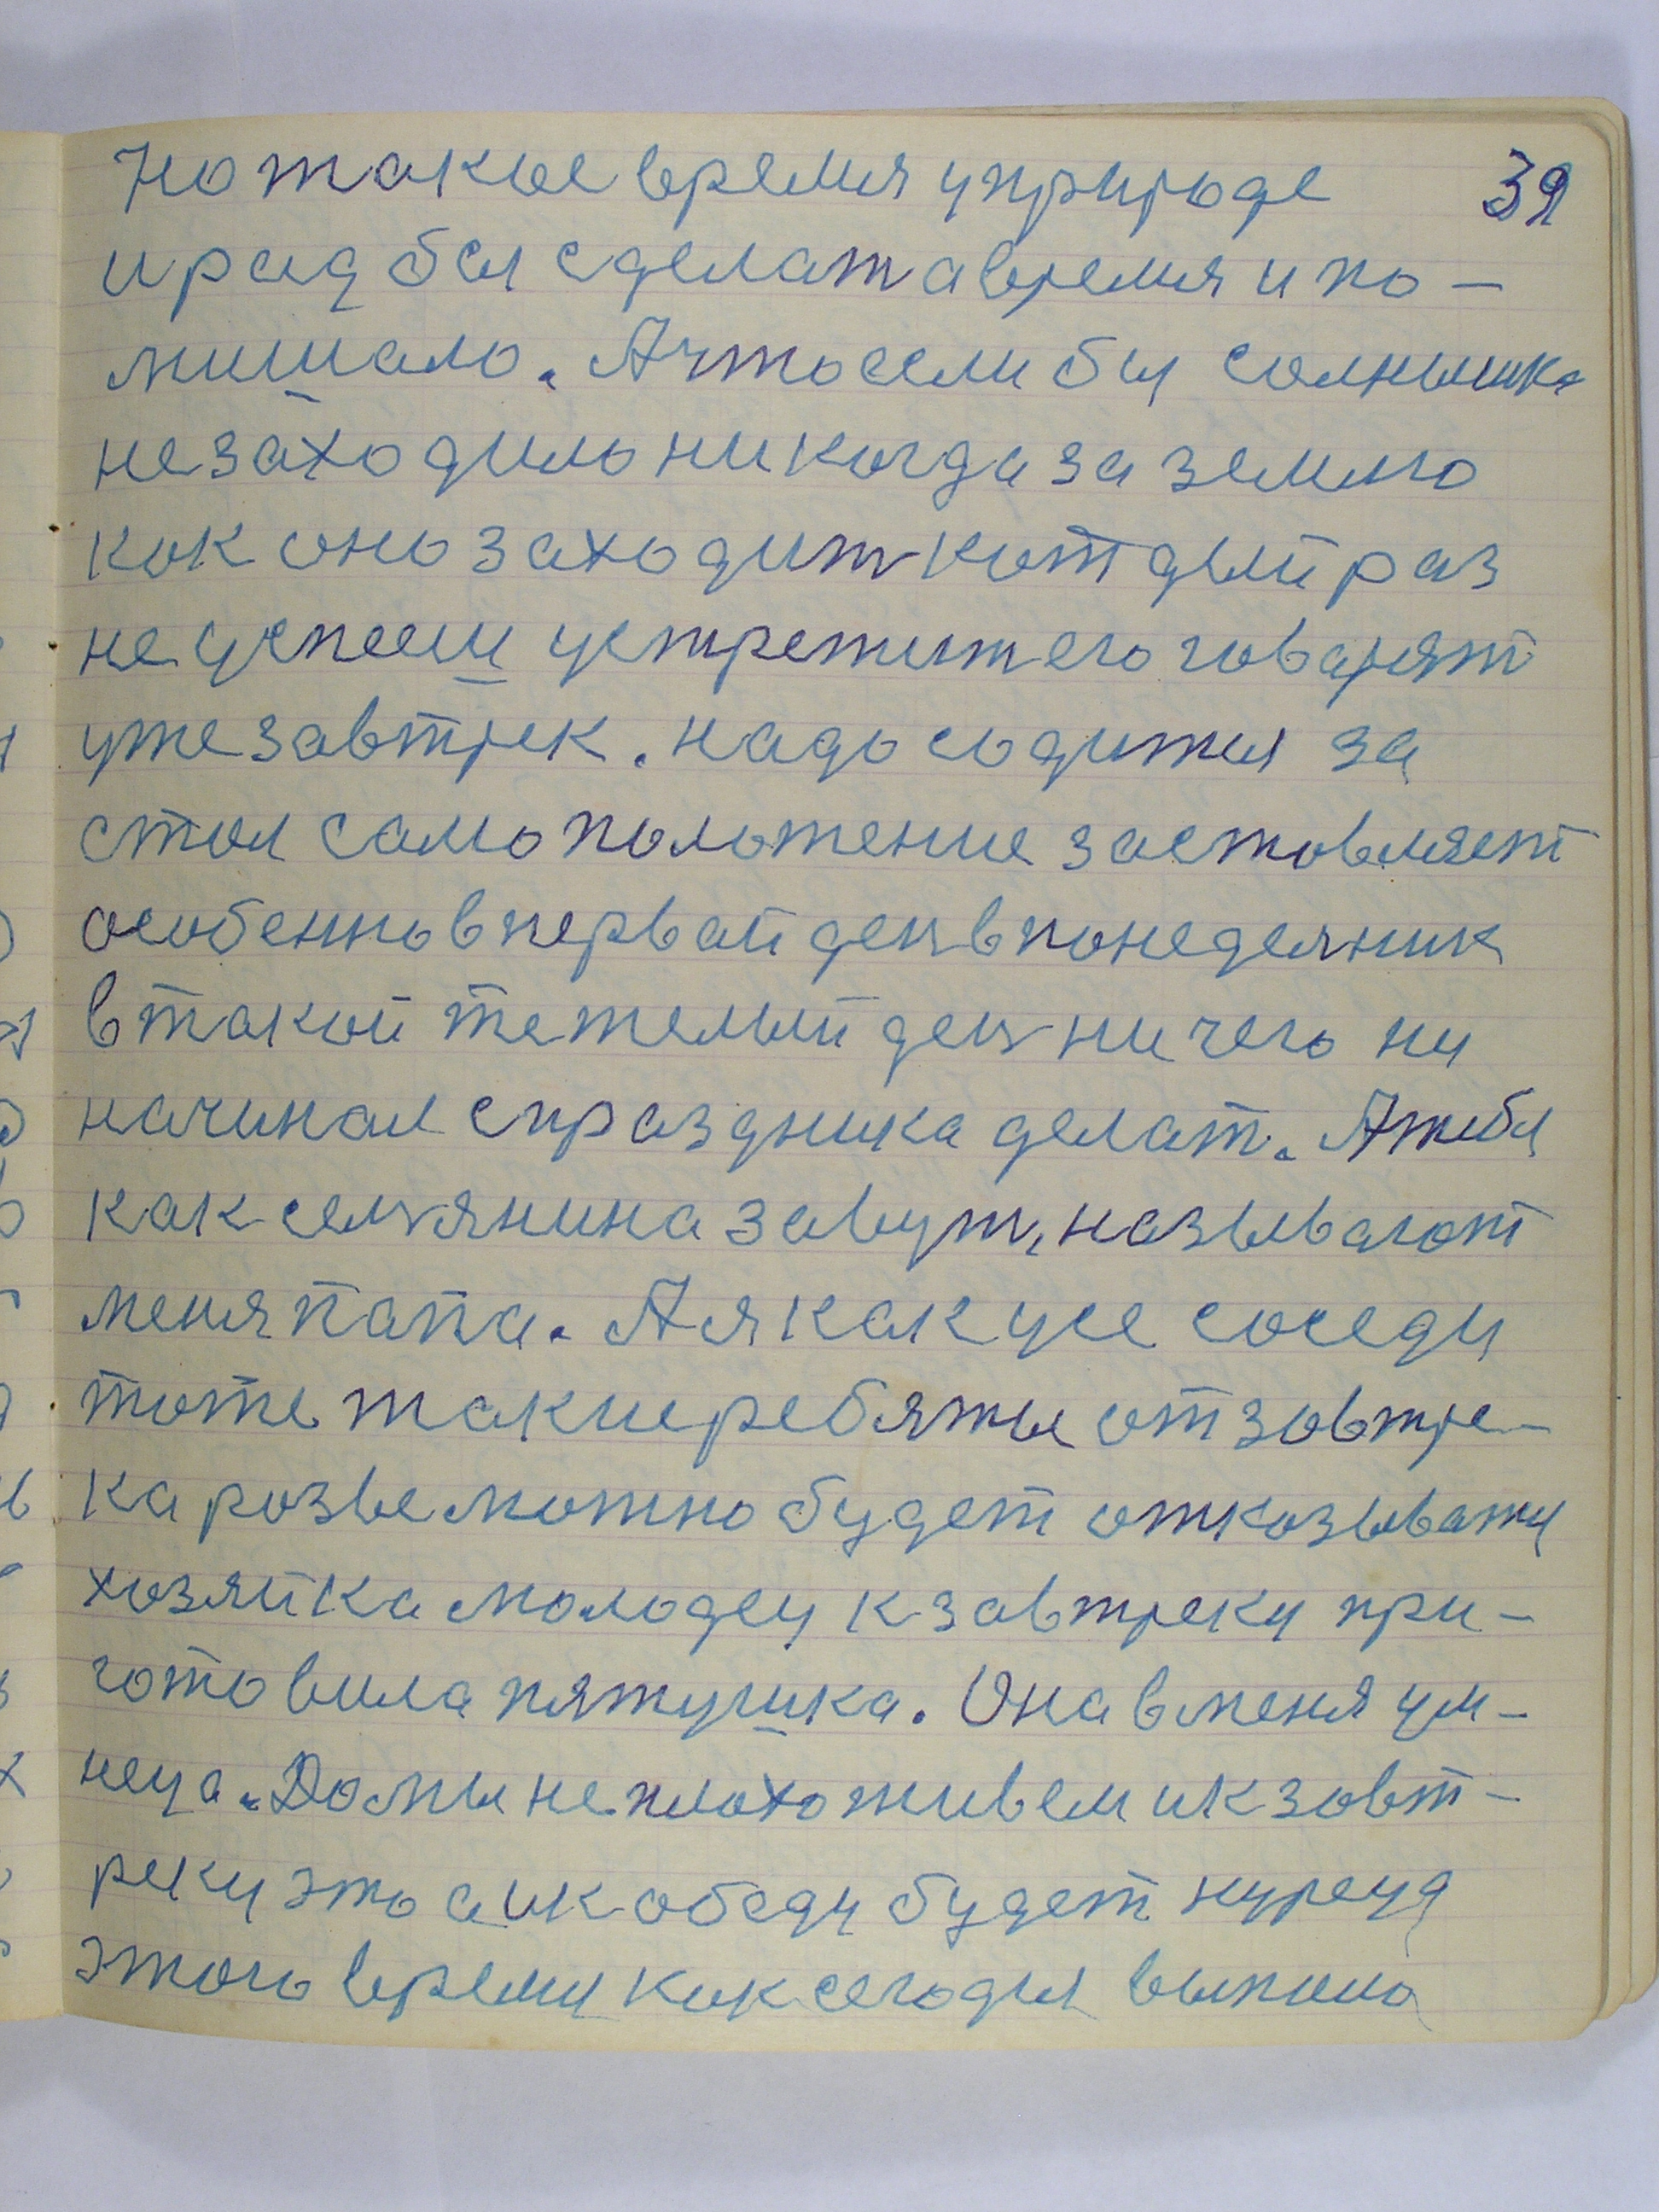 Но такые время у природе 39
и рад бы сделат а время и по-
мишало. А что если бы солнышка
не заходило никогда за землю
как оно заходит котдый раз
не успееш устретит его говарят
уже завтрек. надо садитця за
стол само положение заставляет
особенно в первай ден в понеделник
в такой тяжелый ден ничего ни
начинал с праздника делат. А тибя
как селянина завут, называют
меня папа. А я как усе соседи
тоже такие ребяты от завтре-
ка розве можно будет отказыватц
хозяйка молодец к завтреку при-
готовила пятушка. Она в меня ум-
неца. Да мы не плохо живем и к завт-
реку это а и к обеду будет курица
этого времи как сегодня выпила